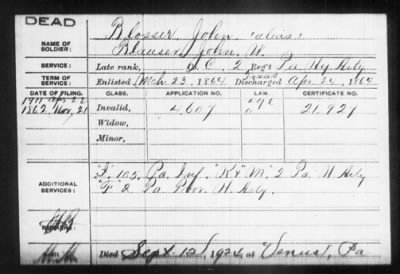 DEAD
NAME OF SOLDIER: Blosser, John. (alias)
Blauser, John. W.
SERVICE: Late rank, C. 2 Reg't Pa. Hy. Arty
TERM OF SERVICE: Enlisted Mch 23, 1864 Discharged 1864
DATE OF FILING. CLASS. APPLICATION NO. LAW. CERTIFICATE NO.
1862 Nov, 21 Invalid, 4.607 21.921
Widow,
Minor,
ADDITIONAL SERVICES: "F" 103, Pa. Inf. "K & M" 2 Pa. H Arty
2 Pa. Prov. H. Arty.
Died Sept 12, 1924, at Venus, Pa